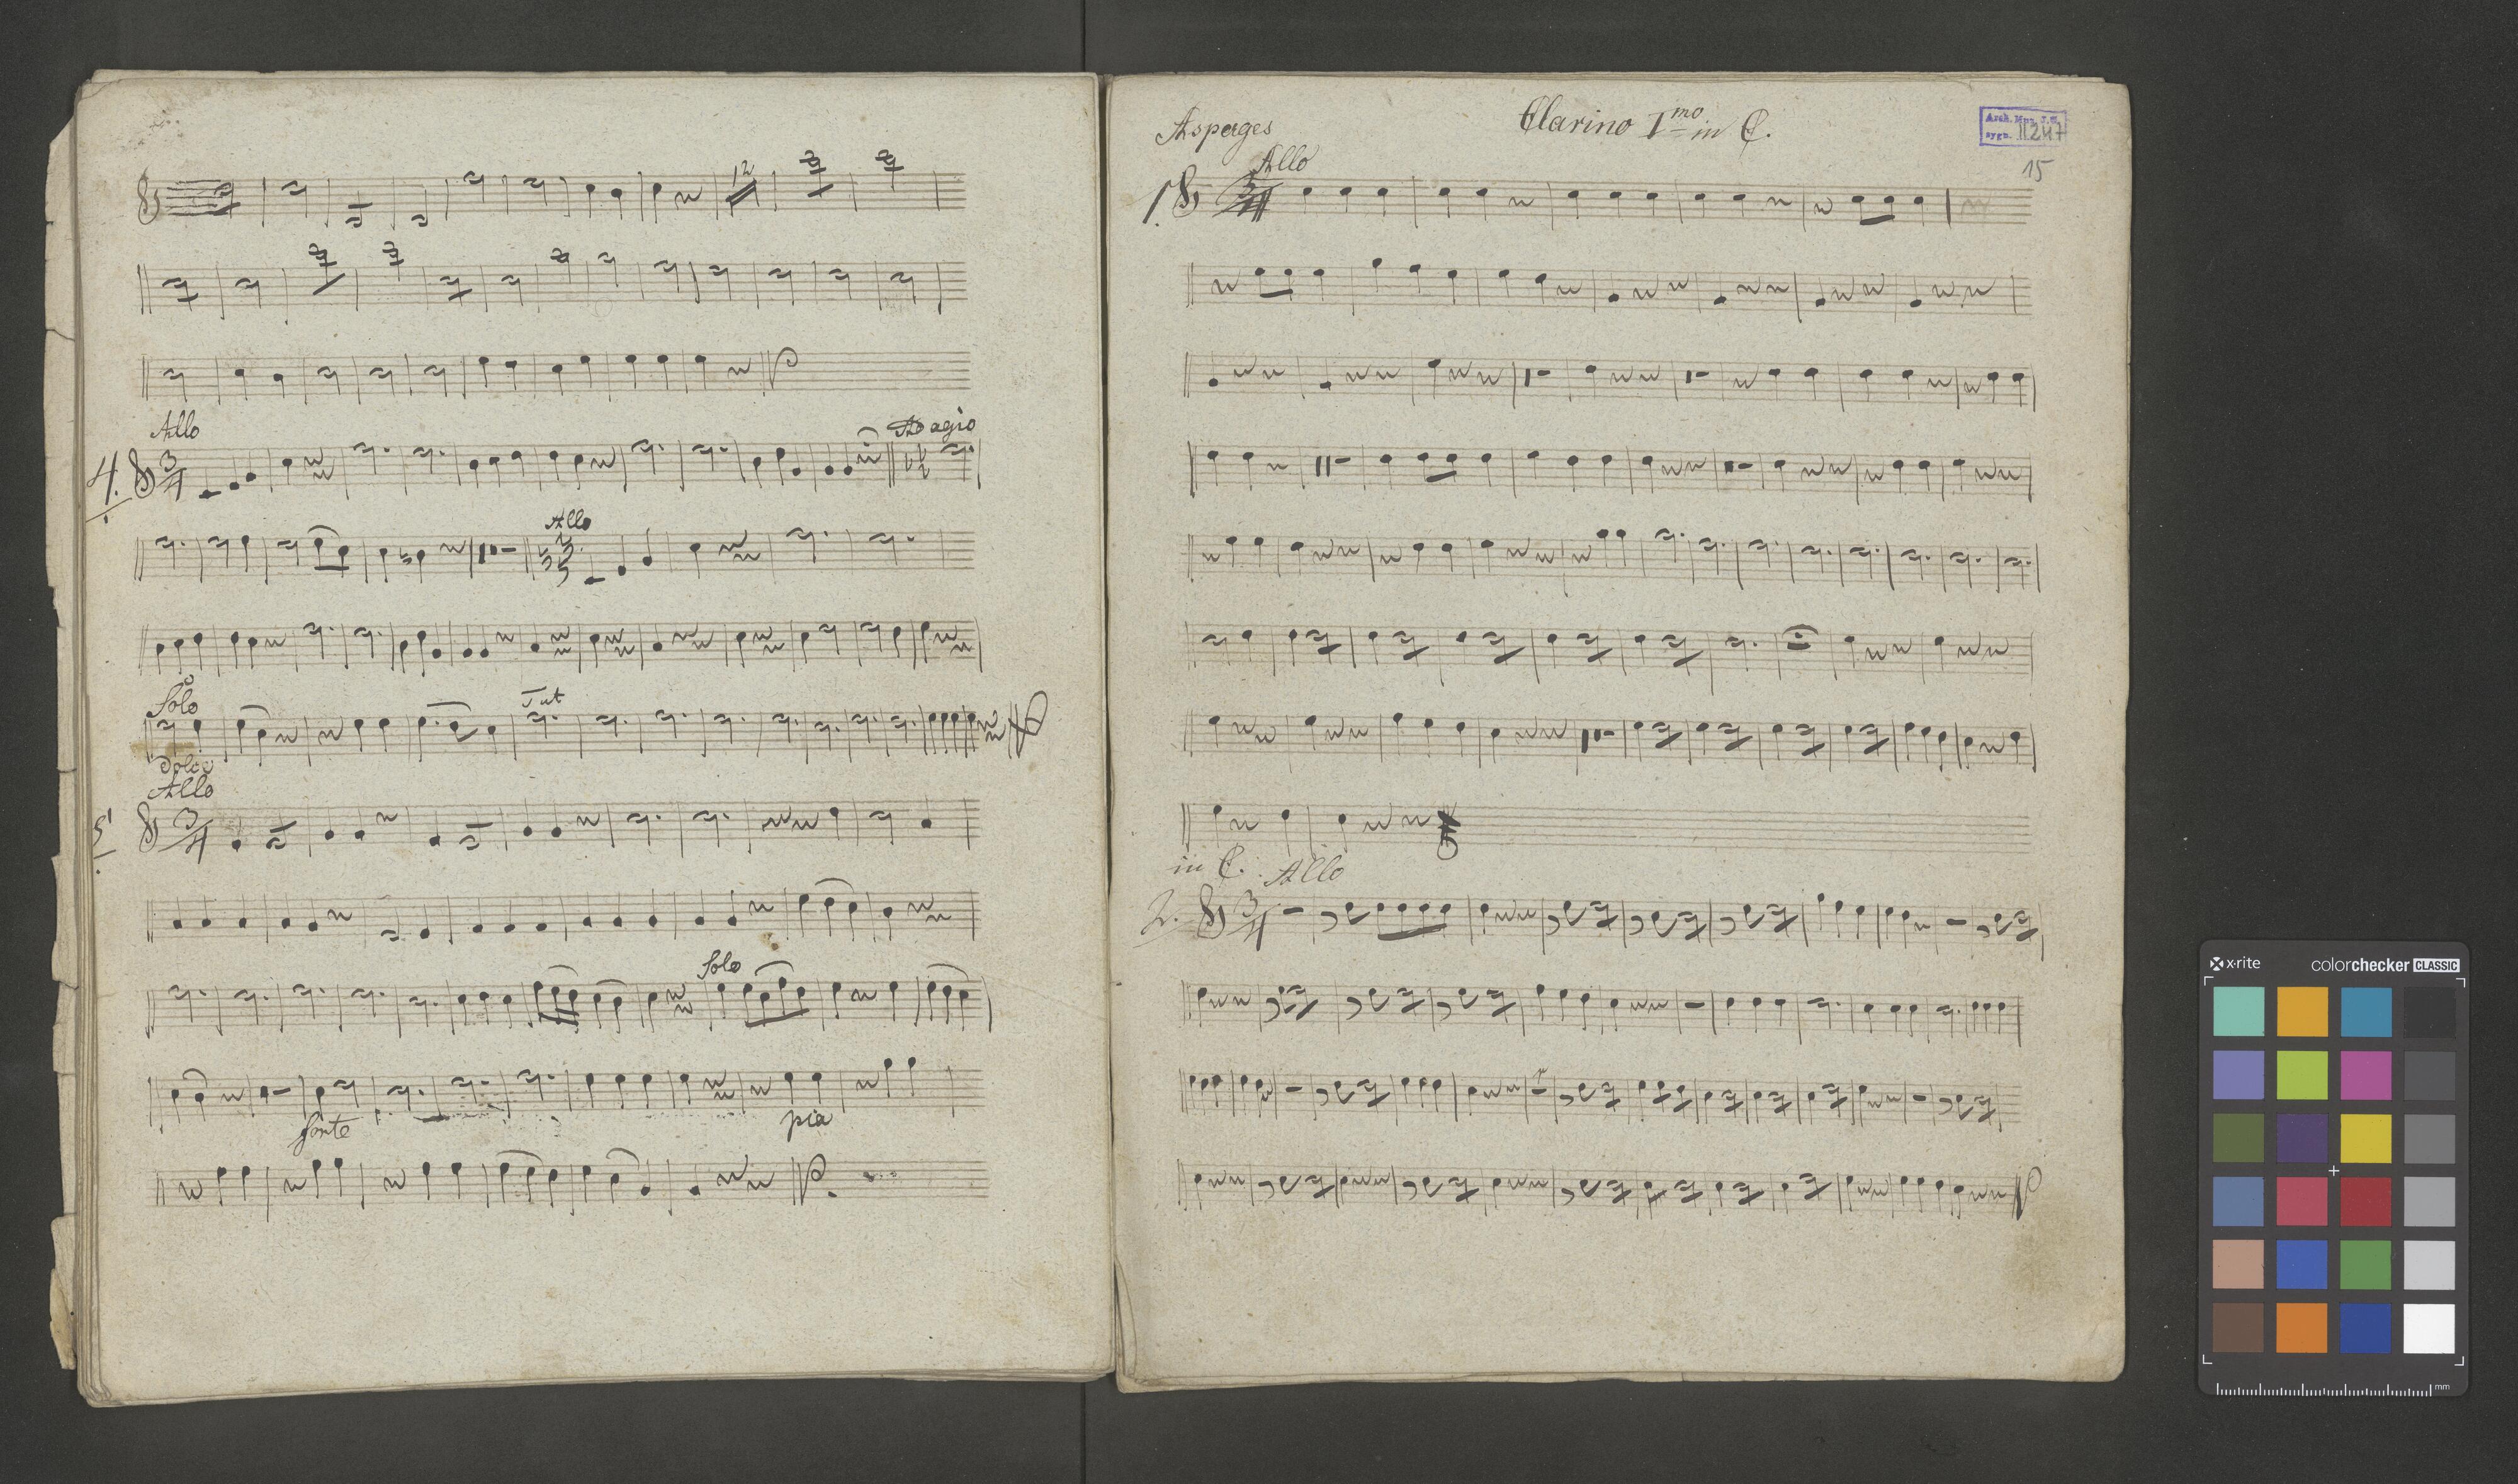 12
Allo
Adagio
4.
3/4
Allo
3
Solo
Tut
Dolce
Allo
5
3/4
Solo
forte
pia
Asperges
Clarino I mo in C.
Arch. Muz. J. G.
sygn. II 247
15
Allo
1.
3/4
in C. Allo
2.
3/4
x·rite
colorchecker CLASSIC
mm